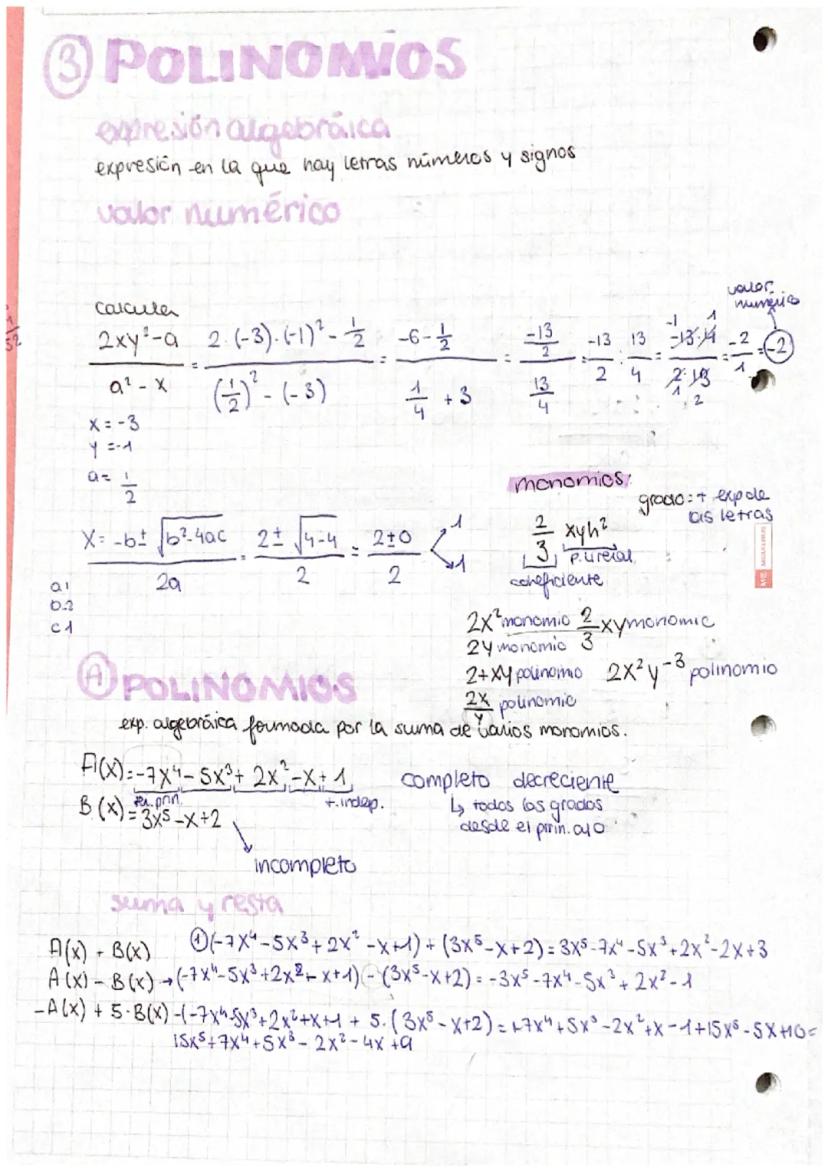 ③ POLINOMIOS
expresión algebráica
expresión en la que hay letras números y signos
valor numérico
calcula
valor numérico
2xy²-a / a²-x = 2·(-3)·(-1)²-1/2 / (1/2)²-(-3) = -6-1/2 / 1/4+3 = -13/2 / 13/4 = -13/2 : 13/4 = -13·4 / 2·13 = -2/1 = -2
x = -3
y = -1
a = 1/2
monomios:
grado: + exp de las letras
2/3 xyh²
p. literal
coheficiente
X = -b± √b²-4ac / 2a = 2± √4-4 / 2 = 2±0 / 2 1 1
a 1
b-2
c 1
2x² monomio 2/3 xy monomio
2y monomio
2+xy polinomio 2x²y⁻³ polinomio
2x/y polinomio
Ⓐ POLINOMIOS
exp. algebráica formada por la suma de varios monomios.
A(x)=-7x⁴-5x³+2x²-x+1 completo decreciente
ter. prin. t. indep. ↳ todos los grados
B(x)=3x⁵-x+2 desde el prin. a 0
incompleto
suma y resta
A(x) + B(x) ①(-7x⁴-5x³+2x²-x+1)+(3x⁵-x+2)=3x⁵-7x⁴-5x³+2x²-2x+3
A(x)-B(x)→(-7x⁴-5x³+2x²-x+1)-(3x⁵-x+2)=-3x⁵-7x⁴-5x³+2x²-1
-A(x)+5·B(x)-(-7x⁴-5x³+2x²+x+1+5·(3x⁵-x+2)=+7x⁴+5x³-2x²+x-1+15x⁵-5x+10=
15x⁵+7x⁴+5x³-2x²-4x+9